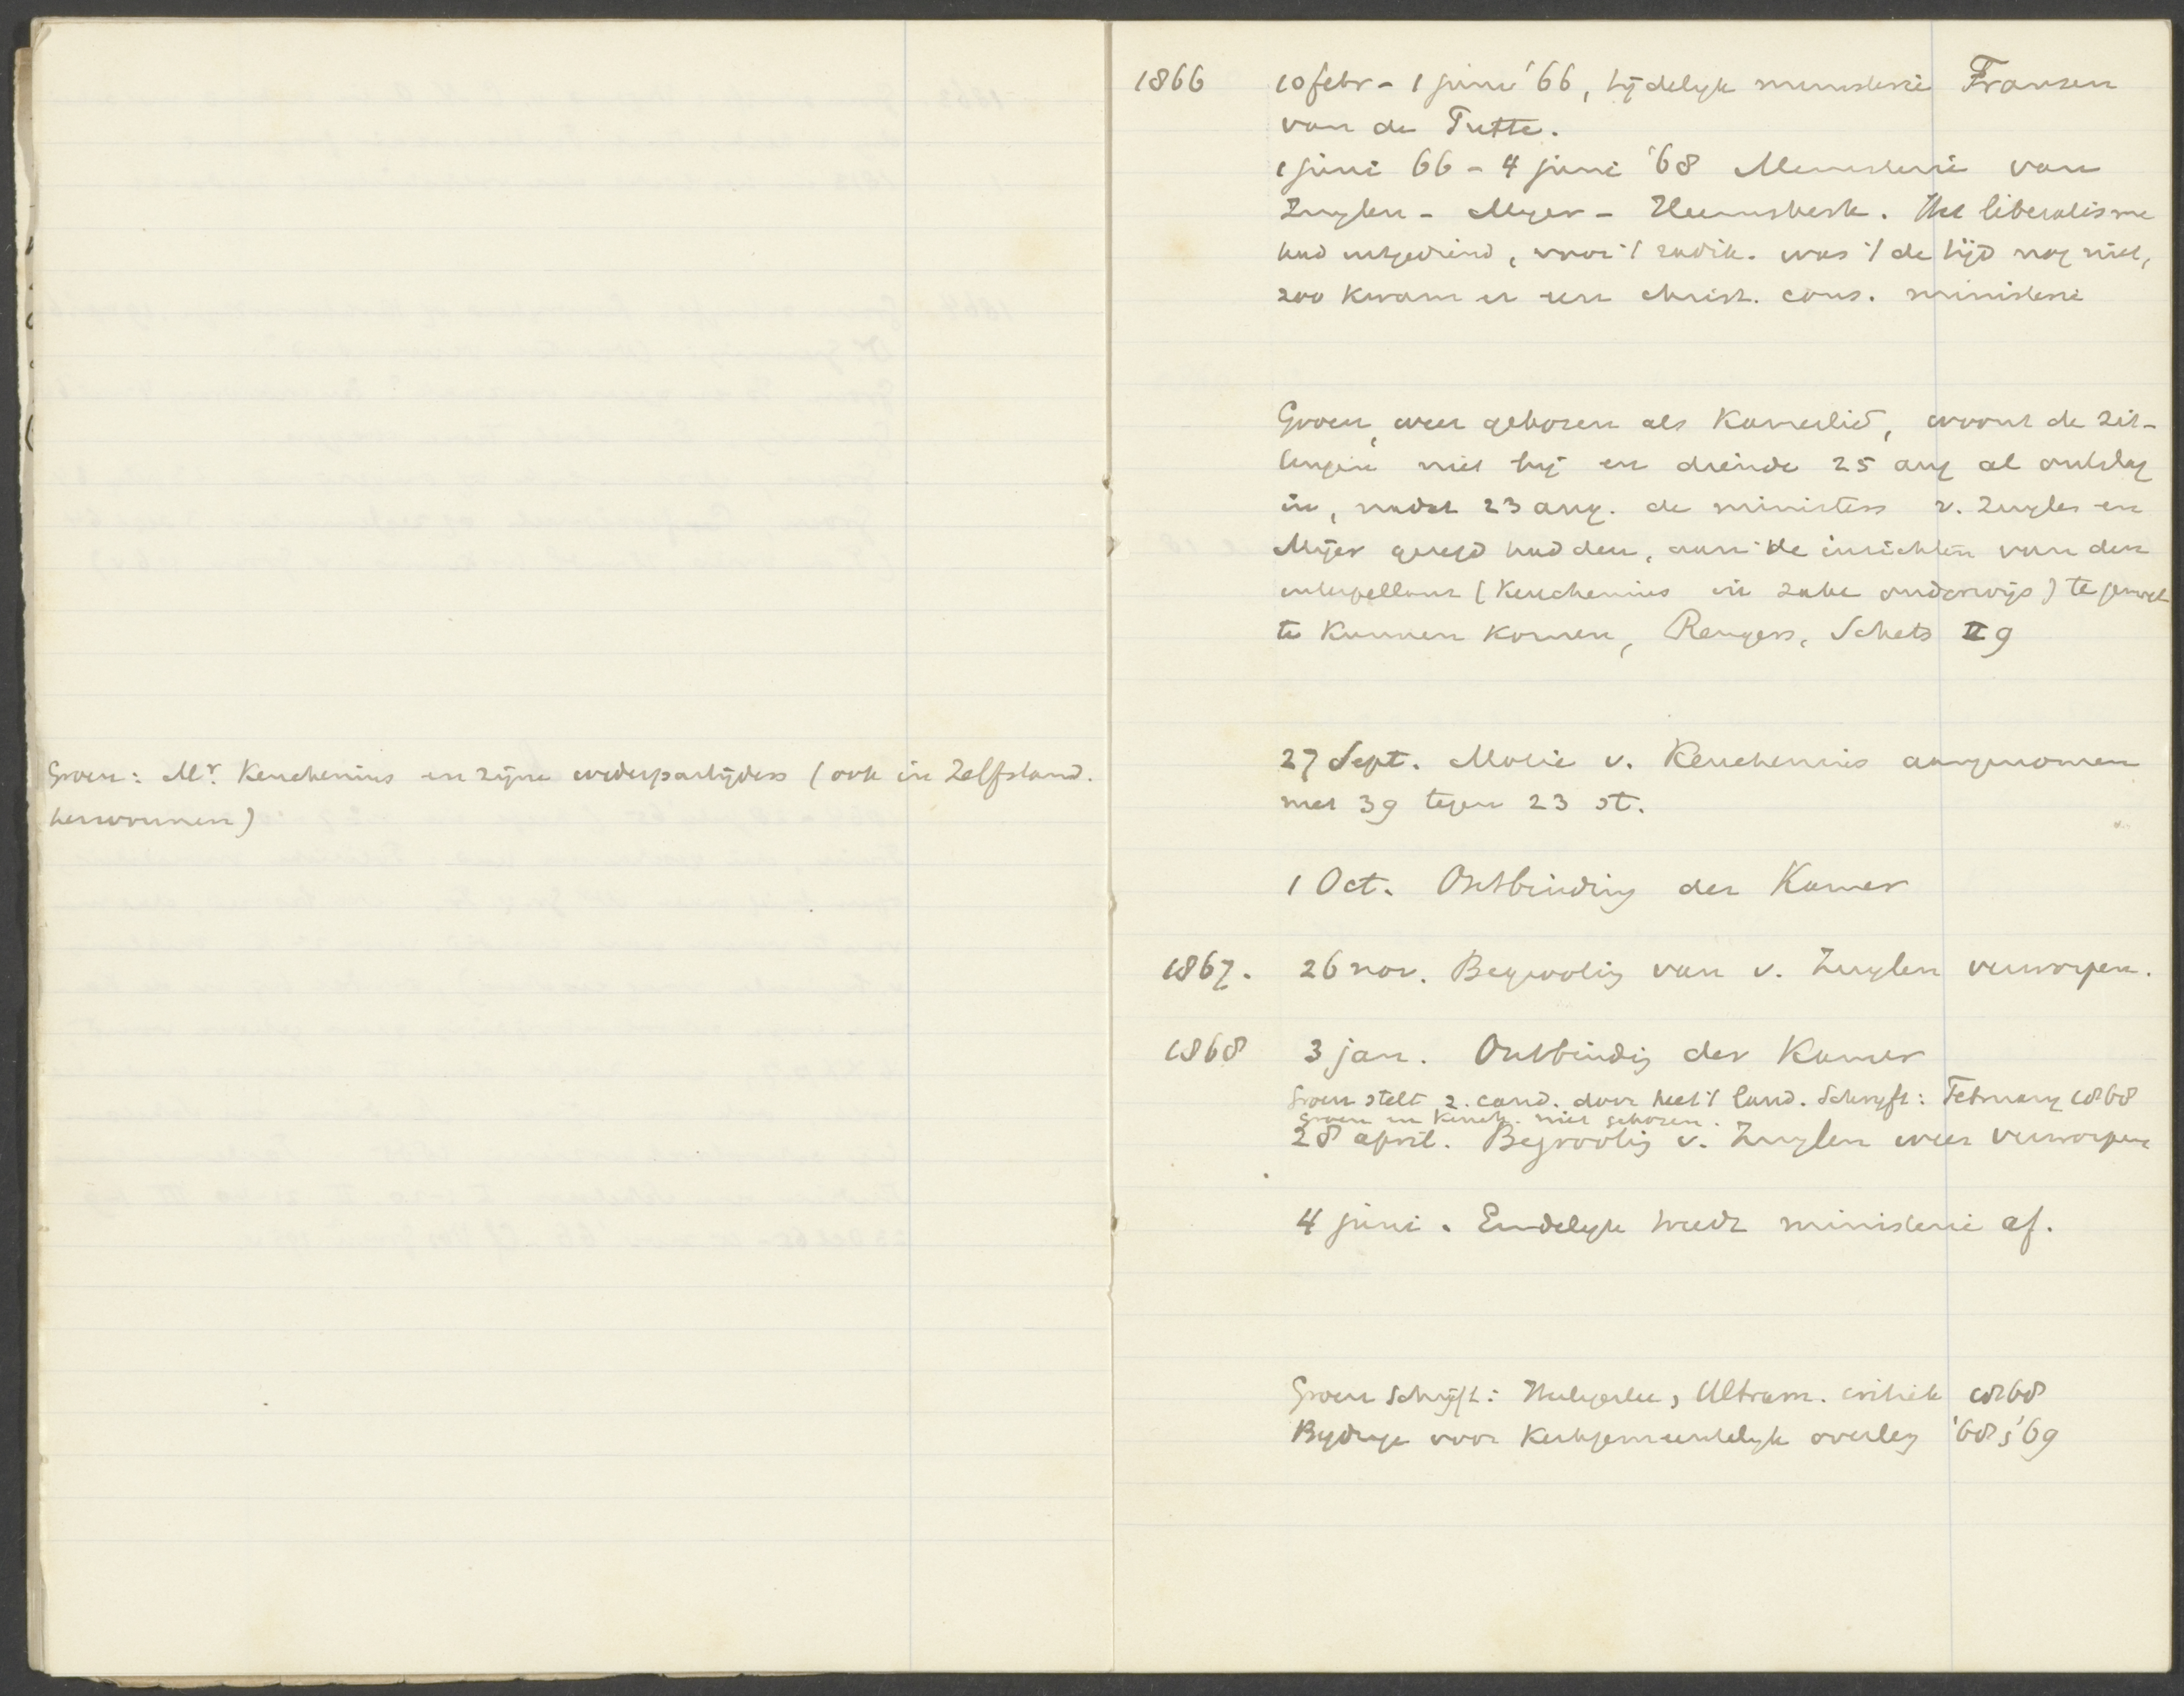 Groen: Mr. Keuchenius en zijne wederpartijders (ook in Zelfstand.
herwonnen)
1866 10 febr - 1 juni '66, tijdelijk ministerie Fransen
van de Putte.
1 juni 66 - 4 juni '68 Ministerie van
Zuylen - Myer - Heemskerk. Het liberalisme
had uitgediend, voor 't radik. was 't de tijd nog niet,
zoo kwam er een christ. cons. ministerie
Groen, weer gekozen als Kamerlid, woont de zit-
tingen niet bij en diende 25 aug al ontslag
in, nadat 23 aug. de ministers v. Zuylen en
Mijer gezegd hadden, aan de inzichten van den
interpellant (Keuchenius in zake onderwijs) te gemoet
te kunnen komen, Rengers, Schets II 9
27 Sept. Motie v. Keuchenius aangenomen
met 39 tegen 23 st.
1 Oct. Ontbinding der Kamer
1867. 26 nov. Begrooting van v. Zuylen verworpen.
1868 3 jan. Ontbinding der Kamer
Groen stelt z. cand. door heel 't land. Schryft: February 1868
Groen en Keuch. niet gekozen.
28 april. Begrooting v. Zuylen weer verworpen
4 juni. Eindelyk treedt ministerie af.
Groen schrijft: Heiligerlee, Ultram. critiek 1868
Bydrage voor Kerkgemeentelyk overleg '68, '69